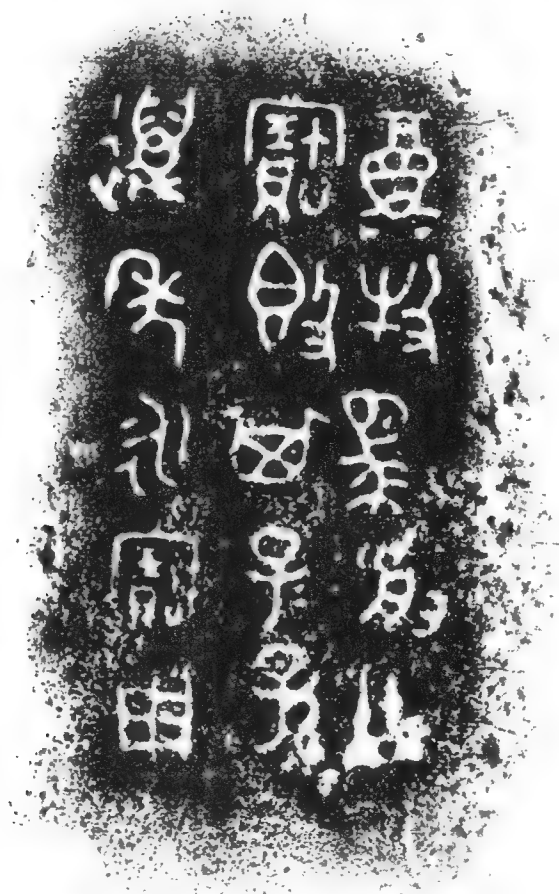 牧馬受乍
寶𣪘其子孫
邁年永寶用